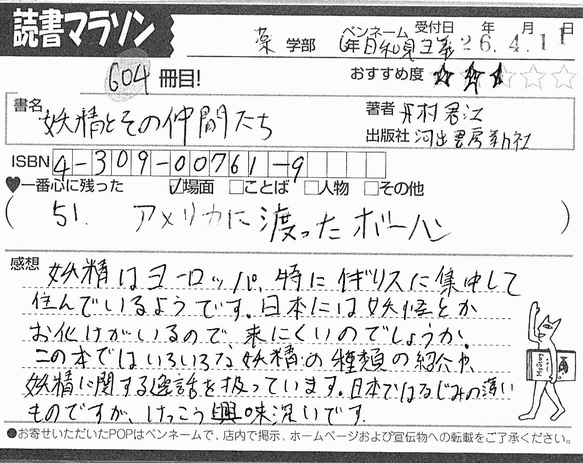 読書マラソン
薬 学部 年 ペンネーム 受付日 年 月 日
26.4.11
604 冊目! おすすめ度
書名 妖精とその仲間たち
著者 井村君江
出版社 河出書房新社
ISBN 4-309-00761-9
♥一番心に残った ☑場面 □ことば □人物 □その他
( 51. アメリカに渡ったボーハン )
感想 妖精はヨーロッパ、特にイギリスに集中して
住んでいるようです。日本には妖怪とか
お化けがいるので、来にくいのでしょうか。
この本ではいろいろな妖精の種類の紹介や、
妖精に関する逸話を扱っています。日本ではなじみの薄い
ものですが、けっこう興味深いです。
●お寄せいただいたPOPはペンネームで、店内で掲示、ホームページおよび宣伝物への転載をご了承ください。